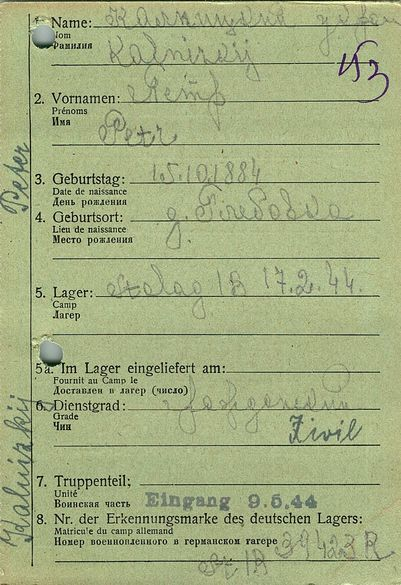 1. Name:
Nom
Фамилия
Kalnizkij
153
2. Vornamen: Петр
Prénoms
Имя
Petr
3. Geburtstag: 15.10.1884
Date de naissance
День рождения
4. Geburtsort: g.
Lieu de naissance
Место рождения
5. Lager: Stalag IB 17.2.44.
Camp
Лагер
5a. Im Lager eingeliefert am:
Fournit au Camp le
Доставлен в лагер (число)
6. Dienstgrad:
Grade
Чин
Zivil
7. Truppenteil;
Unité
Воинская часть Eingang 9.5.44
8. Nr. der Erkennungsmarke des deutschen Lagers:
Matricule du camp allemand
Номер военнопленного в германском гагере 39423 R
St IB
Kalnizkij Peter